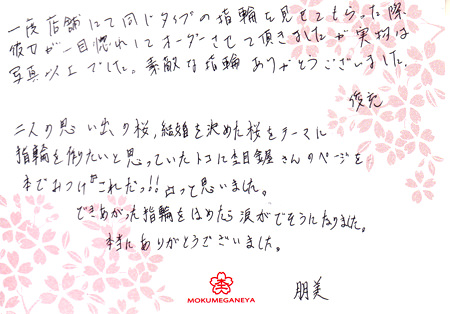 一度店舗にて同じタイプの指輪を見せてもらった際
彼女が一目惚れしてオーダーさせて頂きましたが実物は
写真以上でした。素敵な指輪ありがとうございました。
俊充
二人の思い出の桜,結婚を決めた桜をテーマに
指輪を作りたいと思っていたトコに杢目金屋さんのページを
本でみつけ"これだっ!!"って思いました。
できあがった指輪をはめたら涙がでそうになりました。
本当にありがとうございました。
朋美
MOKUMEGANEYA